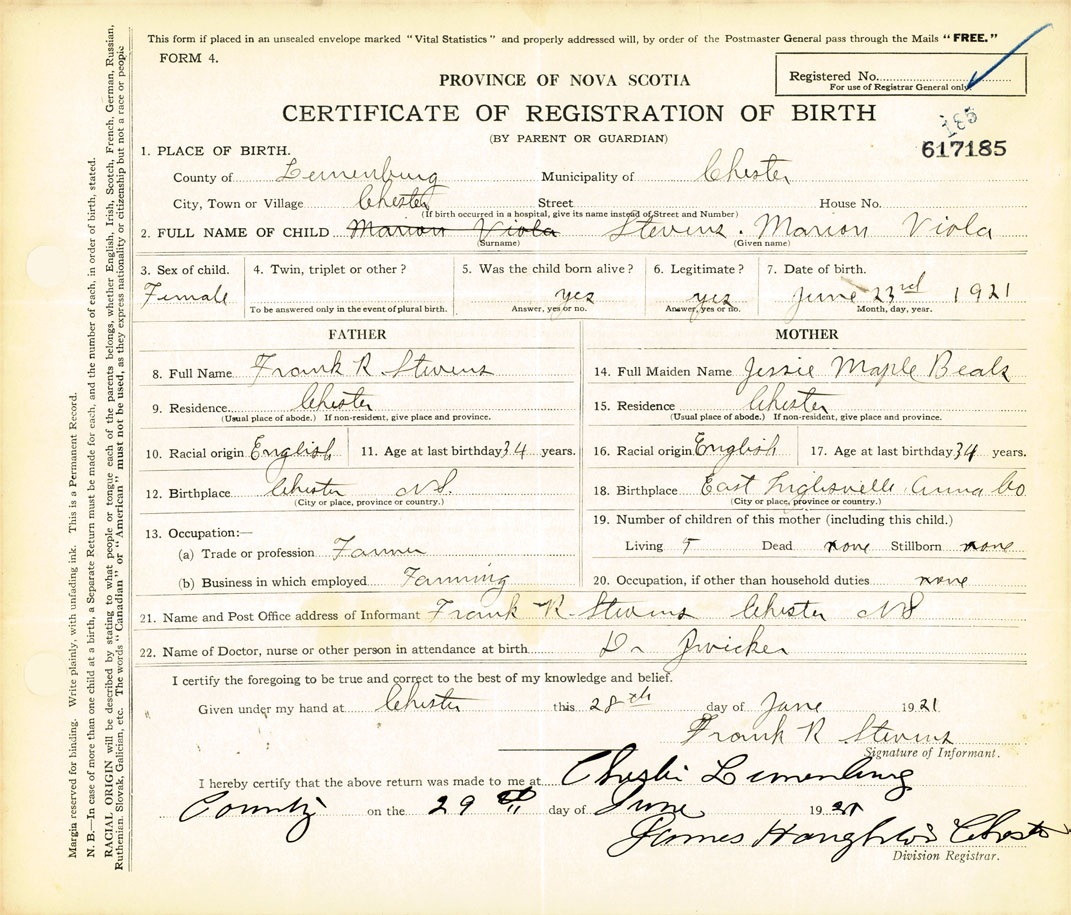 This form if placed in an unsealed envelope marked "Vital Statistics" and properly addressed will, by order of the Postmaster General pass through the Mails "FREE."
FORM 4.
Registered No.
For use of Registrar General only.
PROVINCE OF NOVA SCOTIA
CERTIFICATE OF REGISTRATION OF BIRTH
(BY PARENT OR GUARDIAN)
185
617185
1. PLACE OF BIRTH.
County of Lunenburg Municipality of Chester
City, Town or Village Chester Street House No.
(If birth occurred in a hospital, give its name instead of Street and Number)
2. FULL NAME OF CHILD Marion Viola Stevens. Marion Viola
(Surname) (Given name)
3. Sex of child. 4. Twin, triplet or other? 5. Was the child born alive? 6. Legitimate? 7. Date of birth.
Female yes yes June 23rd 1921
To be answered only in the event of plural birth. Answer, yes or no. Answer, yes or no. Month, day, year.
FATHER
8. Full Name Frank R Stevens
9. Residence Chester
(Usual place of abode.) If non-resident, give place and province.
10. Racial origin English 11. Age at last birthday 34 years.
12. Birthplace Chester NS.
(City or place, province or country.)
13. Occupation:—
(a) Trade or profession Farmer
(b) Business in which employed Farming
MOTHER
14. Full Maiden Name Jessie Maple Beals
15. Residence Chester
(Usual place of abode.) If non-resident, give place and province.
16. Racial origin English 17. Age at last birthday 34 years.
18. Birthplace East Inglisville Anna Co
(City or place, province or country.)
19. Number of children of this mother (including this child.)
Living Dead none Stillborn none
20. Occupation, if other than household duties none
21. Name and Post Office address of Informant Frank R Stevens Chester NS
22. Name of Doctor, nurse or other person in attendance at birth Dr Zwicker
I certify the foregoing to be true and correct to the best of my knowledge and belief.
Given under my hand at Chester this 28th day of June 1921.
Frank R Stevens
Signature of Informant.
I hereby certify that the above return was made to me at Chester Lunenburg
County on the 29th day of June 1921
James Chester
Division Registrar.
Margin reserved for binding. Write plainly, with unfading ink. This is a Permanent Record.
N. B.—In case of more than one child at a birth, a Separate Return must be made for each, and the number of each, in order of birth, stated.
RACIAL ORIGIN will be described by stating to what people or tongue each of the parents belongs, whether English, Irish, Scotch, French, German, Russian,
Ruthenian, Slovak, Galician, etc. The words "Canadian" or "American" must not be used, as they express nationality or citizenship but not a race or people